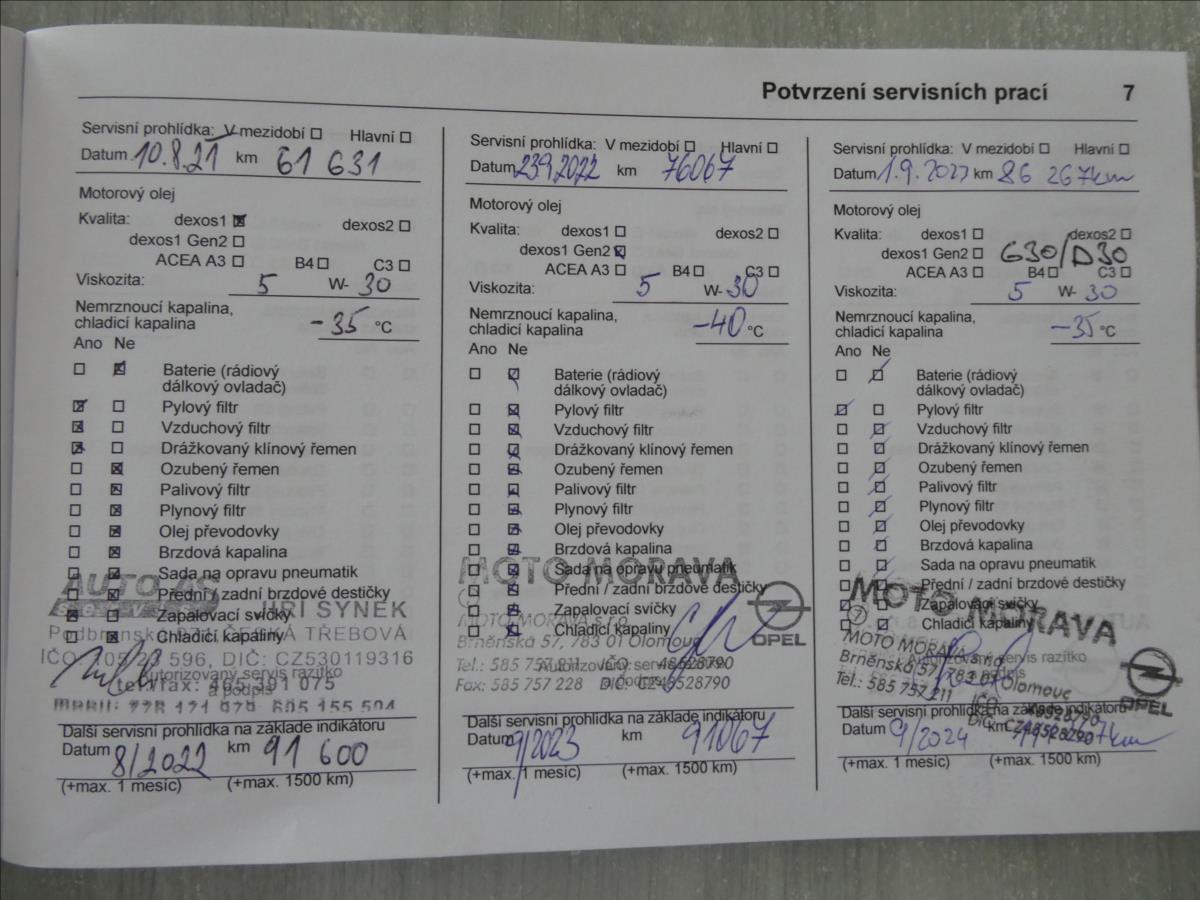 Potvrzení servisních prací 7
Servisní prohlídka: V mezidobí ☐ Hlavní ☐
Datum 10.8.21 km 61 631
Motorový olej
Kvalita: dexos1 ☒ dexos2 ☐
dexos1 Gen2 ☐
ACEA A3 ☐ B4 ☐ C3 ☐
Viskozita: 5 W- 30
Nemrznoucí kapalina,
chladicí kapalina -35 °C
Ano Ne
☐ ☒ Baterie (rádiový
dálkový ovladač)
☒ ☐ Pylový filtr
☒ ☐ Vzduchový filtr
☒ ☐ Drážkovaný klínový řemen
☐ ☒ Ozubený řemen
☐ ☒ Palivový filtr
☐ ☒ Plynový filtr
☐ ☒ Olej převodovky
☐ ☒ Brzdová kapalina
☐ ☒ Sada na opravu pneumatik
☐ ☒ Přední / zadní brzdové destičky
☒ ☐ Zapalovací svíčky
☐ ☒ Chladicí kapaliny
AUTO
JIŘÍ SYNEK
ČESKÁ TŘEBOVÁ
596, DIČ: CZ530119316
Autorizovaný servis razítko
a podpis
tel/fax: 465 391 075
Další servisní prohlídka na základě indikátoru
Datum 8/2022 km 91 600
(+max. 1 mesíc) (+max. 1500 km)
Servisní prohlídka: V mezidobí ☐ Hlavní ☐
Datum 23.9.2022 km 76067
Motorový olej
Kvalita: dexos1 ☐ dexos2 ☐
dexos1 Gen2 ☒
ACEA A3 ☐ B4 ☐ C3 ☐
Viskozita: 5 W- 30
Nemrznoucí kapalina,
chladicí kapalina -40 °C
Ano Ne
☐ ☒ Baterie (rádiový
dálkový ovladač)
☐ ☒ Pylový filtr
☐ ☒ Vzduchový filtr
☐ ☒ Drážkovaný klínový řemen
☐ ☒ Ozubený řemen
☐ ☒ Palivový filtr
☐ ☒ Plynový filtr
☐ ☒ Olej převodovky
☐ ☒ Brzdová kapalina
☐ ☒ Sada na opravu pneumatik
☐ ☒ Přední / zadní brzdové destičky
☐ ☒ Zapalovací svíčky
☐ ☒ Chladicí kapaliny
MOTO MORAVA
MOTO MORAVA s.r.o.
Brněnská 57, 783 01 Olomouc
OPEL
Tel.: 585 757 811 IČO 48528790
Autorizovaný servis razítko
a podpis
Fax: 585 757 228 DIČ: CZ48528790
Další servisní prohlídka na základě indikátoru
Datum 9/2023 km 91067
(+max. 1 mesíc) (+max. 1500 km)
Servisní prohlídka: V mezidobí ☐ Hlavní ☐
Datum 1.9.2023 km 86 267km
Motorový olej
Kvalita: dexos1 ☐ dexos2 ☐
dexos1 Gen2 ☐ G30/D30
ACEA A3 ☐ B4 ☐ C3 ☐
Viskozita: 5 W- 30
Nemrznoucí kapalina,
chladicí kapalina -35 °C
Ano Ne
☐ ☒ Baterie (rádiový
dálkový ovladač)
☒ ☐ Pylový filtr
☐ ☒ Vzduchový filtr
☐ ☒ Drážkovaný klínový řemen
☐ ☒ Ozubený řemen
☐ ☒ Palivový filtr
☐ ☒ Plynový filtr
☐ ☒ Olej převodovky
☐ ☒ Brzdová kapalina
☐ ☒ Sada na opravu pneumatik
☐ ☒ Přední / zadní brzdové destičky
☐ ☒ Zapalovací svíčky
☐ ☒ Chladicí kapaliny
MOTO MORAVA
7
MOTO MORAVA s.r.o.
Brněnská 57, 783 01 Olomouc
Tel.: 585 757 211
Autorizovaný servis razítko
a podpis
OPEL
IČO 48528790
DIČ: CZ48528790
Další servisní prohlídka na základě indikátoru
Datum 9/2024 km
(+max. 1 mesíc) (+max. 1500 km)